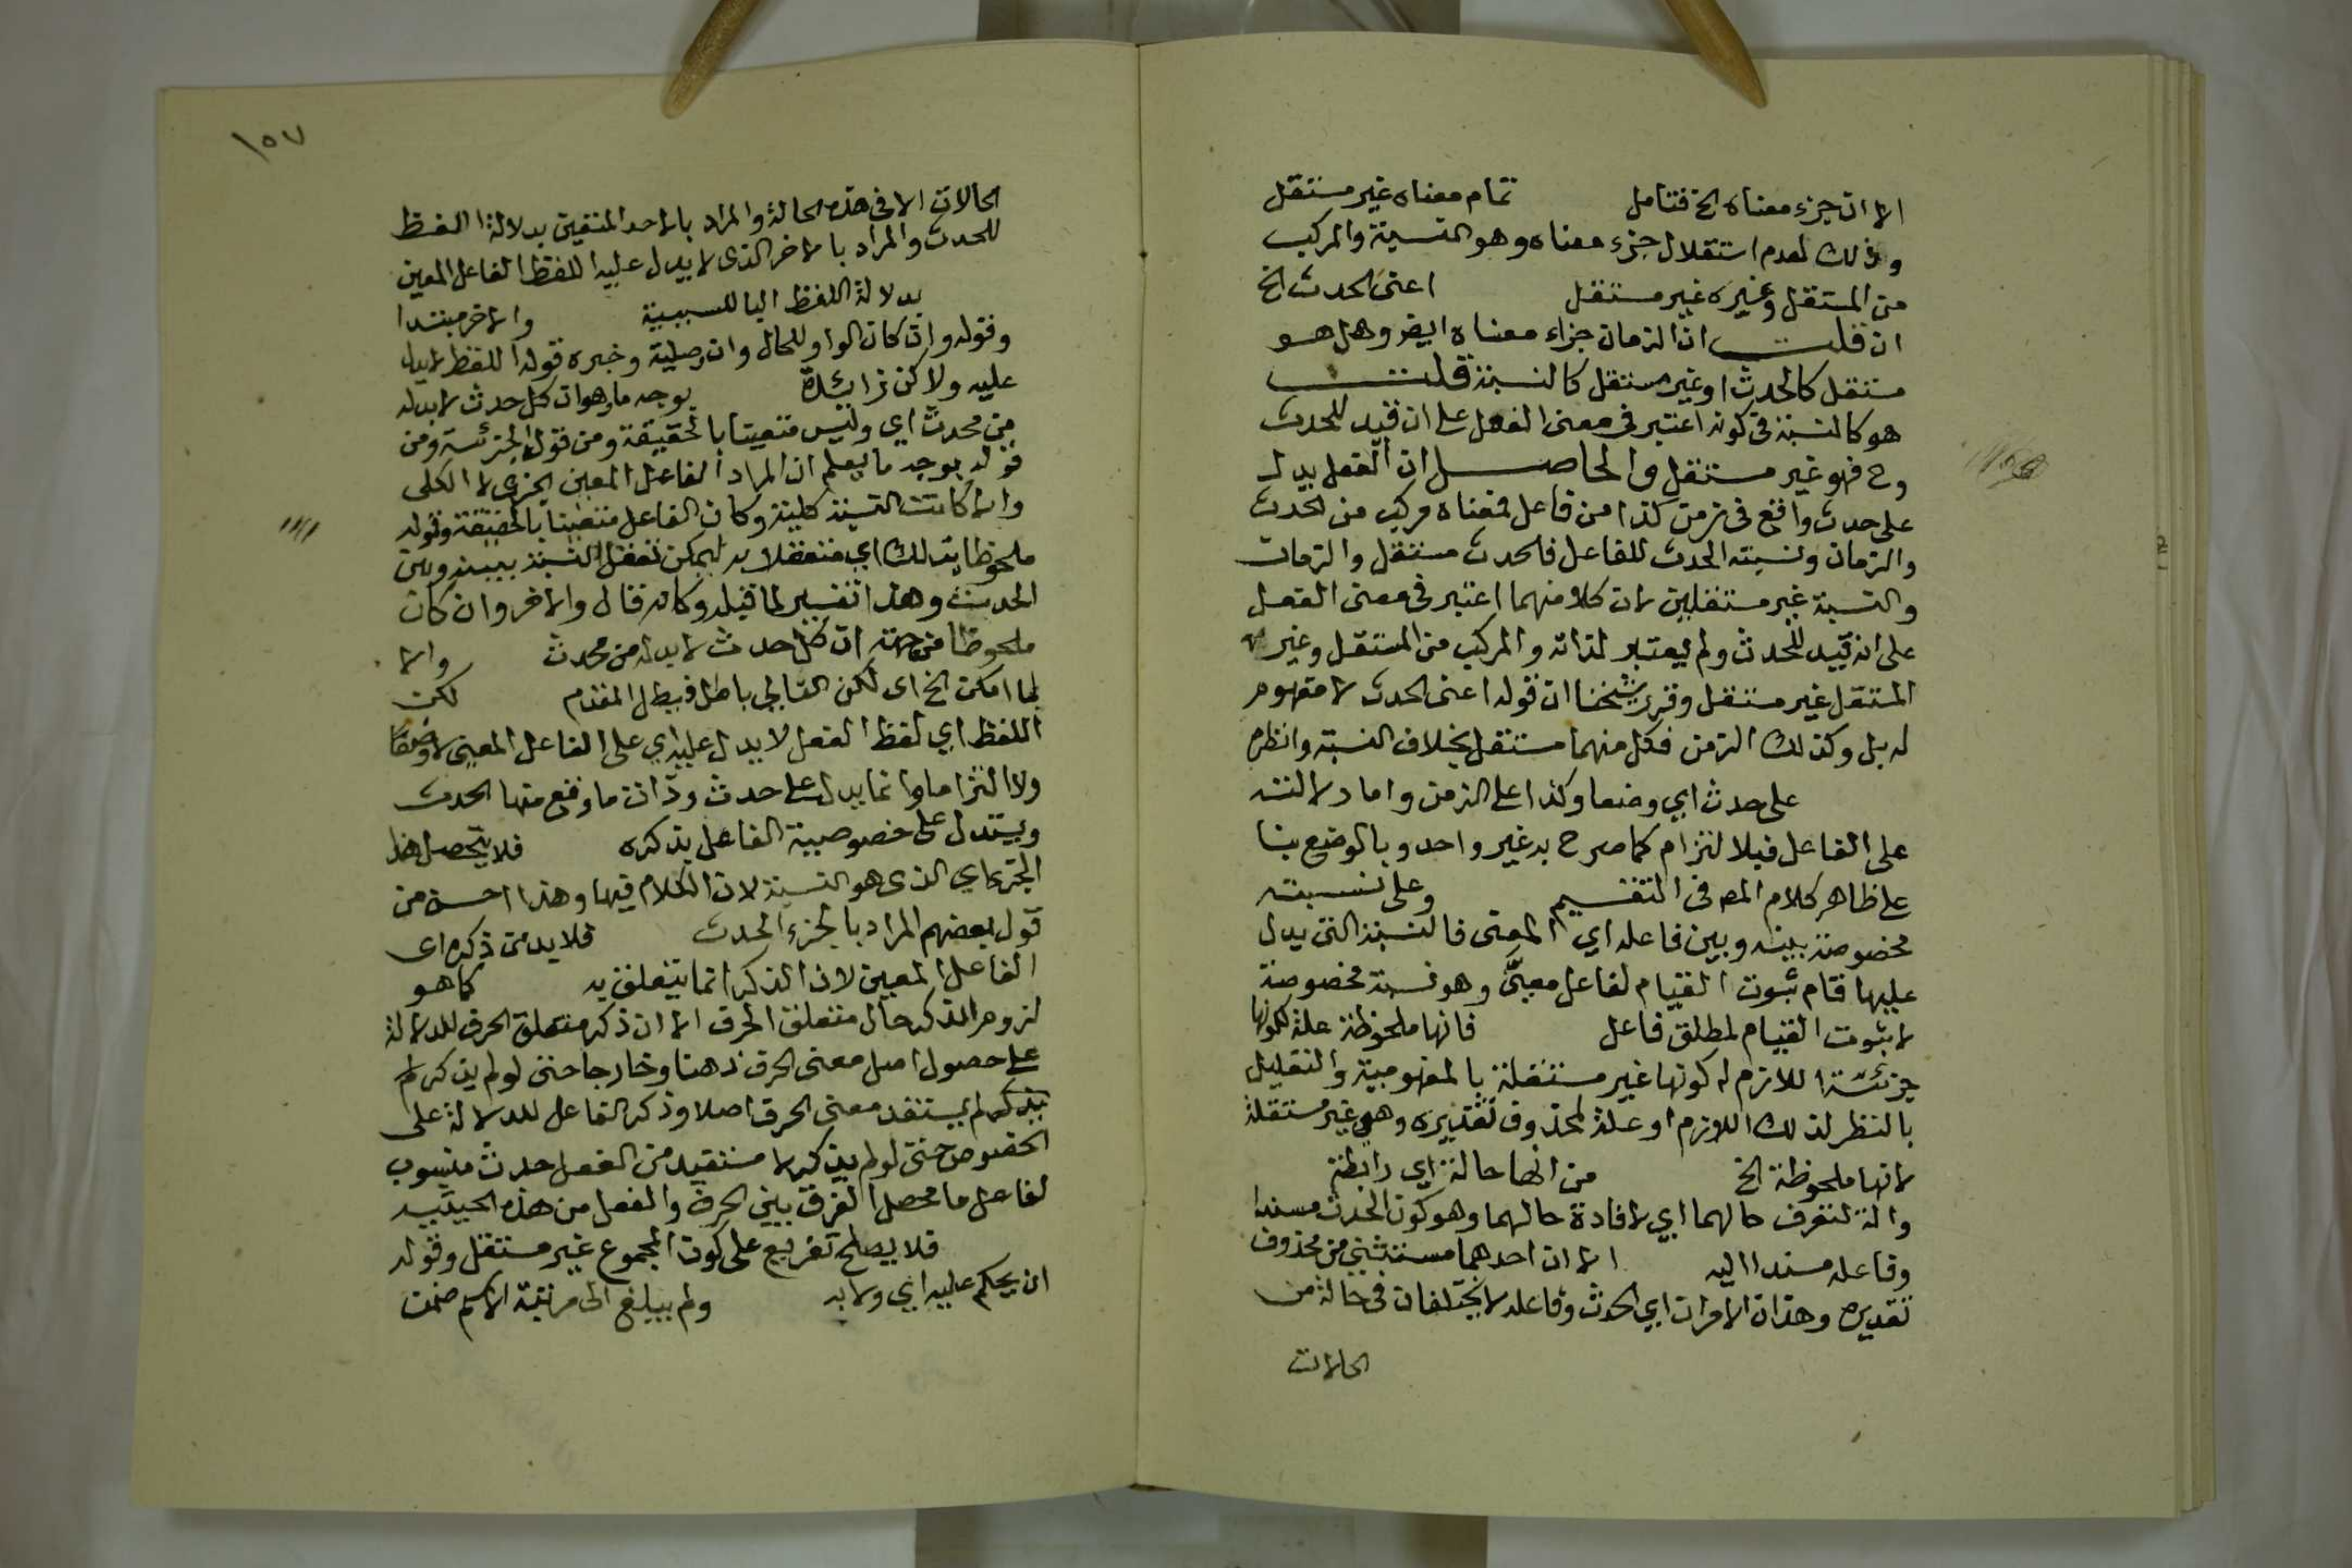 الا ان جزء معناه الخ فتامل تمام معناه غير مستقل
وذلك لعدم استقلال جزء معناه وهو النسبة والمركب
من المستقل وغيره غير مستقل اعنى الحدث الخ
ان قلت ان الزمان جزاء معناه ايضر وهل هو
مستقل كالحدث او غير مستقل كالنسبة قلت
هو كالنسبة فى كونه اعتبر فى معنى الفعل على ان قيد للحدث
وح فهو غير مستقل والحاصل ان الفعل يدل
على حدث واقع فى زمن كذا من فاعل فمعناه مركب من الحدث
والزمان ونسبته الحدث للفاعل فالحدث مستقل والزمان
والنسبة غير مستقلين لان كلا منهما اعتبر فى معنى الفعل
على انه قيد للحدث ولم يعتبر لذاته والمركب من المستقل وغير
المستقل غير مستقل وقرر شيخنا ان قوله اعنى الحدث لا مفهوم
له بل وكذلك الزمن فكل منهما مستقل بخلاف النسبة وانظره
على حدث اي وضعا وكذا على الزمن واما دلالته
على الفاعل فبالالتزام كما صرح به غير واحد وبالوضع بنا
على ظاهر كلام المص فى التقسيم وعلى نسبته
مخصوصة بينه وبين فاعله اي المعنى فالنسبة التى يدل
عليها قام ثبوت القيام لفاعل معين وهو نسبة مخصوصة
لا ثبوت القيام لمطلق فاعل فانها ملحوظة علة لكونها
جزئية اللازم له كونها غير مستقلة بالمفهومية والتعليل
بالنظر لذلك اللازم او علة لمحذوف تقديره وهى غير مستقلة
لانها ملحوظة الخ من انها حالة اي رابطة
والة لتعرف حالهما اي لافادة حالهما وهو كون الحدث مسندا
وفاعله مسندا اليه الا ان احدهما مستثنى من محذوف
تقديره وهذان الامران اي الحدث وفاعله لا يختلفان فى حالة من
الحالات
١٥٧
الحالات الا فى هذه الحالة والمراد بالاحد المتعين بدلالة اللفظ
للحدث والمراد بالاخر الذى لا يدل عليه اللفظ الفاعل المعين
بدلالة اللفظ البا للسببية والاخر مبتدا
وقوله وان كان الواو للحال وان وصلية وخبره قوله اللفظ لا يدل
عليه ولاكن زائدة بوجه ما وهو ان كل حدث لا بد له
من محدث اي وليس متعينا بالحقيقة ومن قوله الجزئية ومن
قوله بوجه ما يعلم ان المراد الفاعل المعين الجزى لا الكلى
والا كانت النسبة كلية وكان الفاعل متعينا بالحقيقة وقوله
ملحوظا بذلك اي متعقلا به ليمكن تعقل النسبة بينه وبين
الحدث وهذا تفسير لما قبله وكانه قال والاخر وان كان
ملحوظا من جهة ان كل حدث لا بد له من محدث والا
لما امكن الخ اى لكن التالي باطل فبطل المقدم لكن
اللفظ اي لفظ الفعل لا يدل عليه اي على الفاعل المعين لا وضعا
ولا التزاما وانما يدل على حدث وذات ما وقع منها الحدث
ويستدل على خصوصية الفاعل بذكره فلا يتحصل هذا
الجزء اي الذى هو النسبة لان الكلام فيها وهذا احسن من
قول بعضهم المراد بالجزء الحدث فلا بد من ذكره اى
الفاعل المعين لان الذكر انما يتعلق به كما هو
لزوم الذكر حال متعلق الحرف الا ان ذكر متعلق الحرف للدلالة
على حصول اصل معنى الحرف ذهنا وخارجا حتى لو لم يذكر لم
يذكر لم يستفد معنى الحرف اصلا وذكر الفاعل للدلالة على
الخصوص حتى لو لم يذكر لا ستفيد من الفعل حدث منسوب
لفاعل ما محصل الفرق بين الحرف والفعل من هذه الحيثية
فلا يصلح تفريع على كون المجموع غير مستقل وقوله
ان يحكم عليه اي ولا به ولم يبلغ الى مرتبة الاسم ضمن